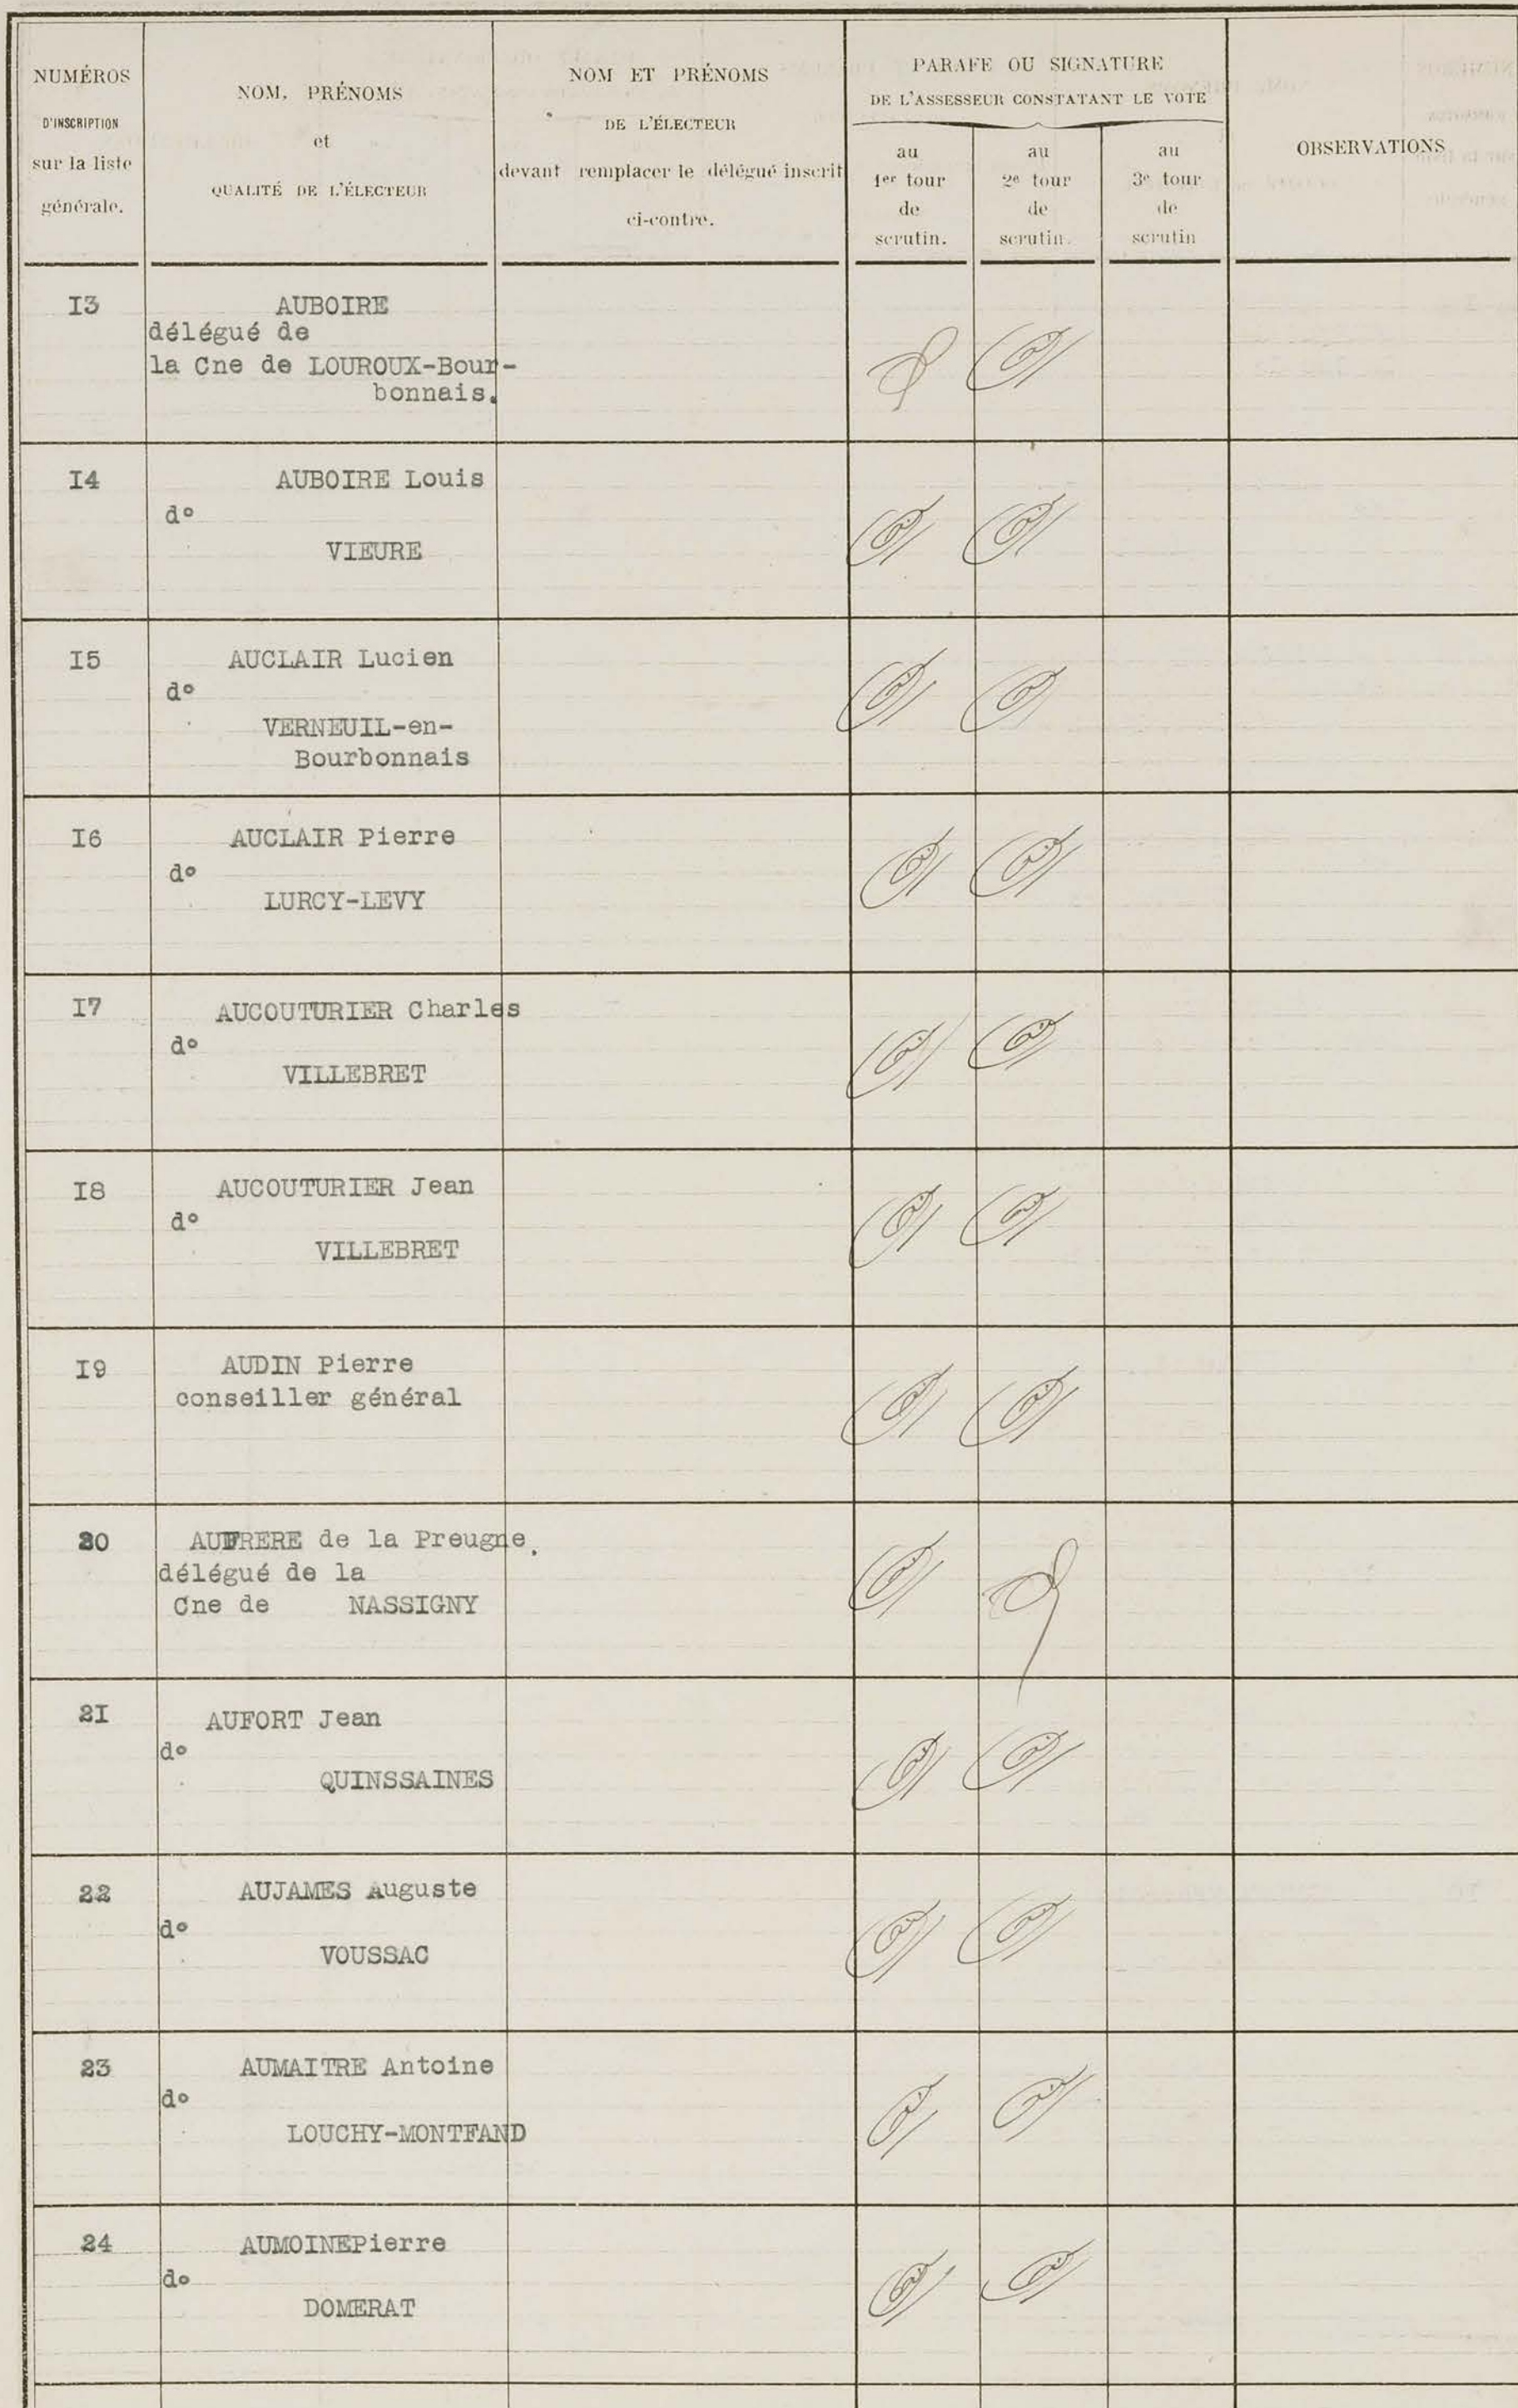 NUMÉROS
D'INSCRIPTION
sur la liste
générale.
NOM, PRÉNOMS
et
QUALITÉ DE L'ÉLECTEUR
NOM ET PRÉNOMS
DE L'ÉLECTEUR
devant remplacer le délégué inscrit
ci-contre.
PARAFE OU SIGNATURE
DE L'ASSESSEUR CONSTATANT LE VOTE
au
1er tour
de
scrutin.
au
2e tour
de
scrutin.
au
3e tour
de
scrutin
OBSERVATIONS
I3
AUBOIRE
délégué de
la Cne de LOUROUX-Bour-
bonnais.
I4
AUBOIRE Louis
d°
VIEURE
I5
AUCLAIR Lucien
d°
VERNEUIL-en-
Bourbonnais
I6
AUCLAIR Pierre
d°
LURCY-LEVY
I7
AUCOUTURIER Charles
d°
VILLEBRET
I8
AUCOUTURIER Jean
d°
VILLEBRET
I9
AUDIN Pierre
conseiller général
20
AUFRERE de la Preugne.
délégué de la
Cne de NASSIGNY
2I
AUFORT Jean
d°
QUINSSAINES
22
AUJAMES Auguste
d°
VOUSSAC
23
AUMAITRE Antoine
d°
LOUCHY-MONTFAND
24
AUMOINEPierre
d°
DOMERAT